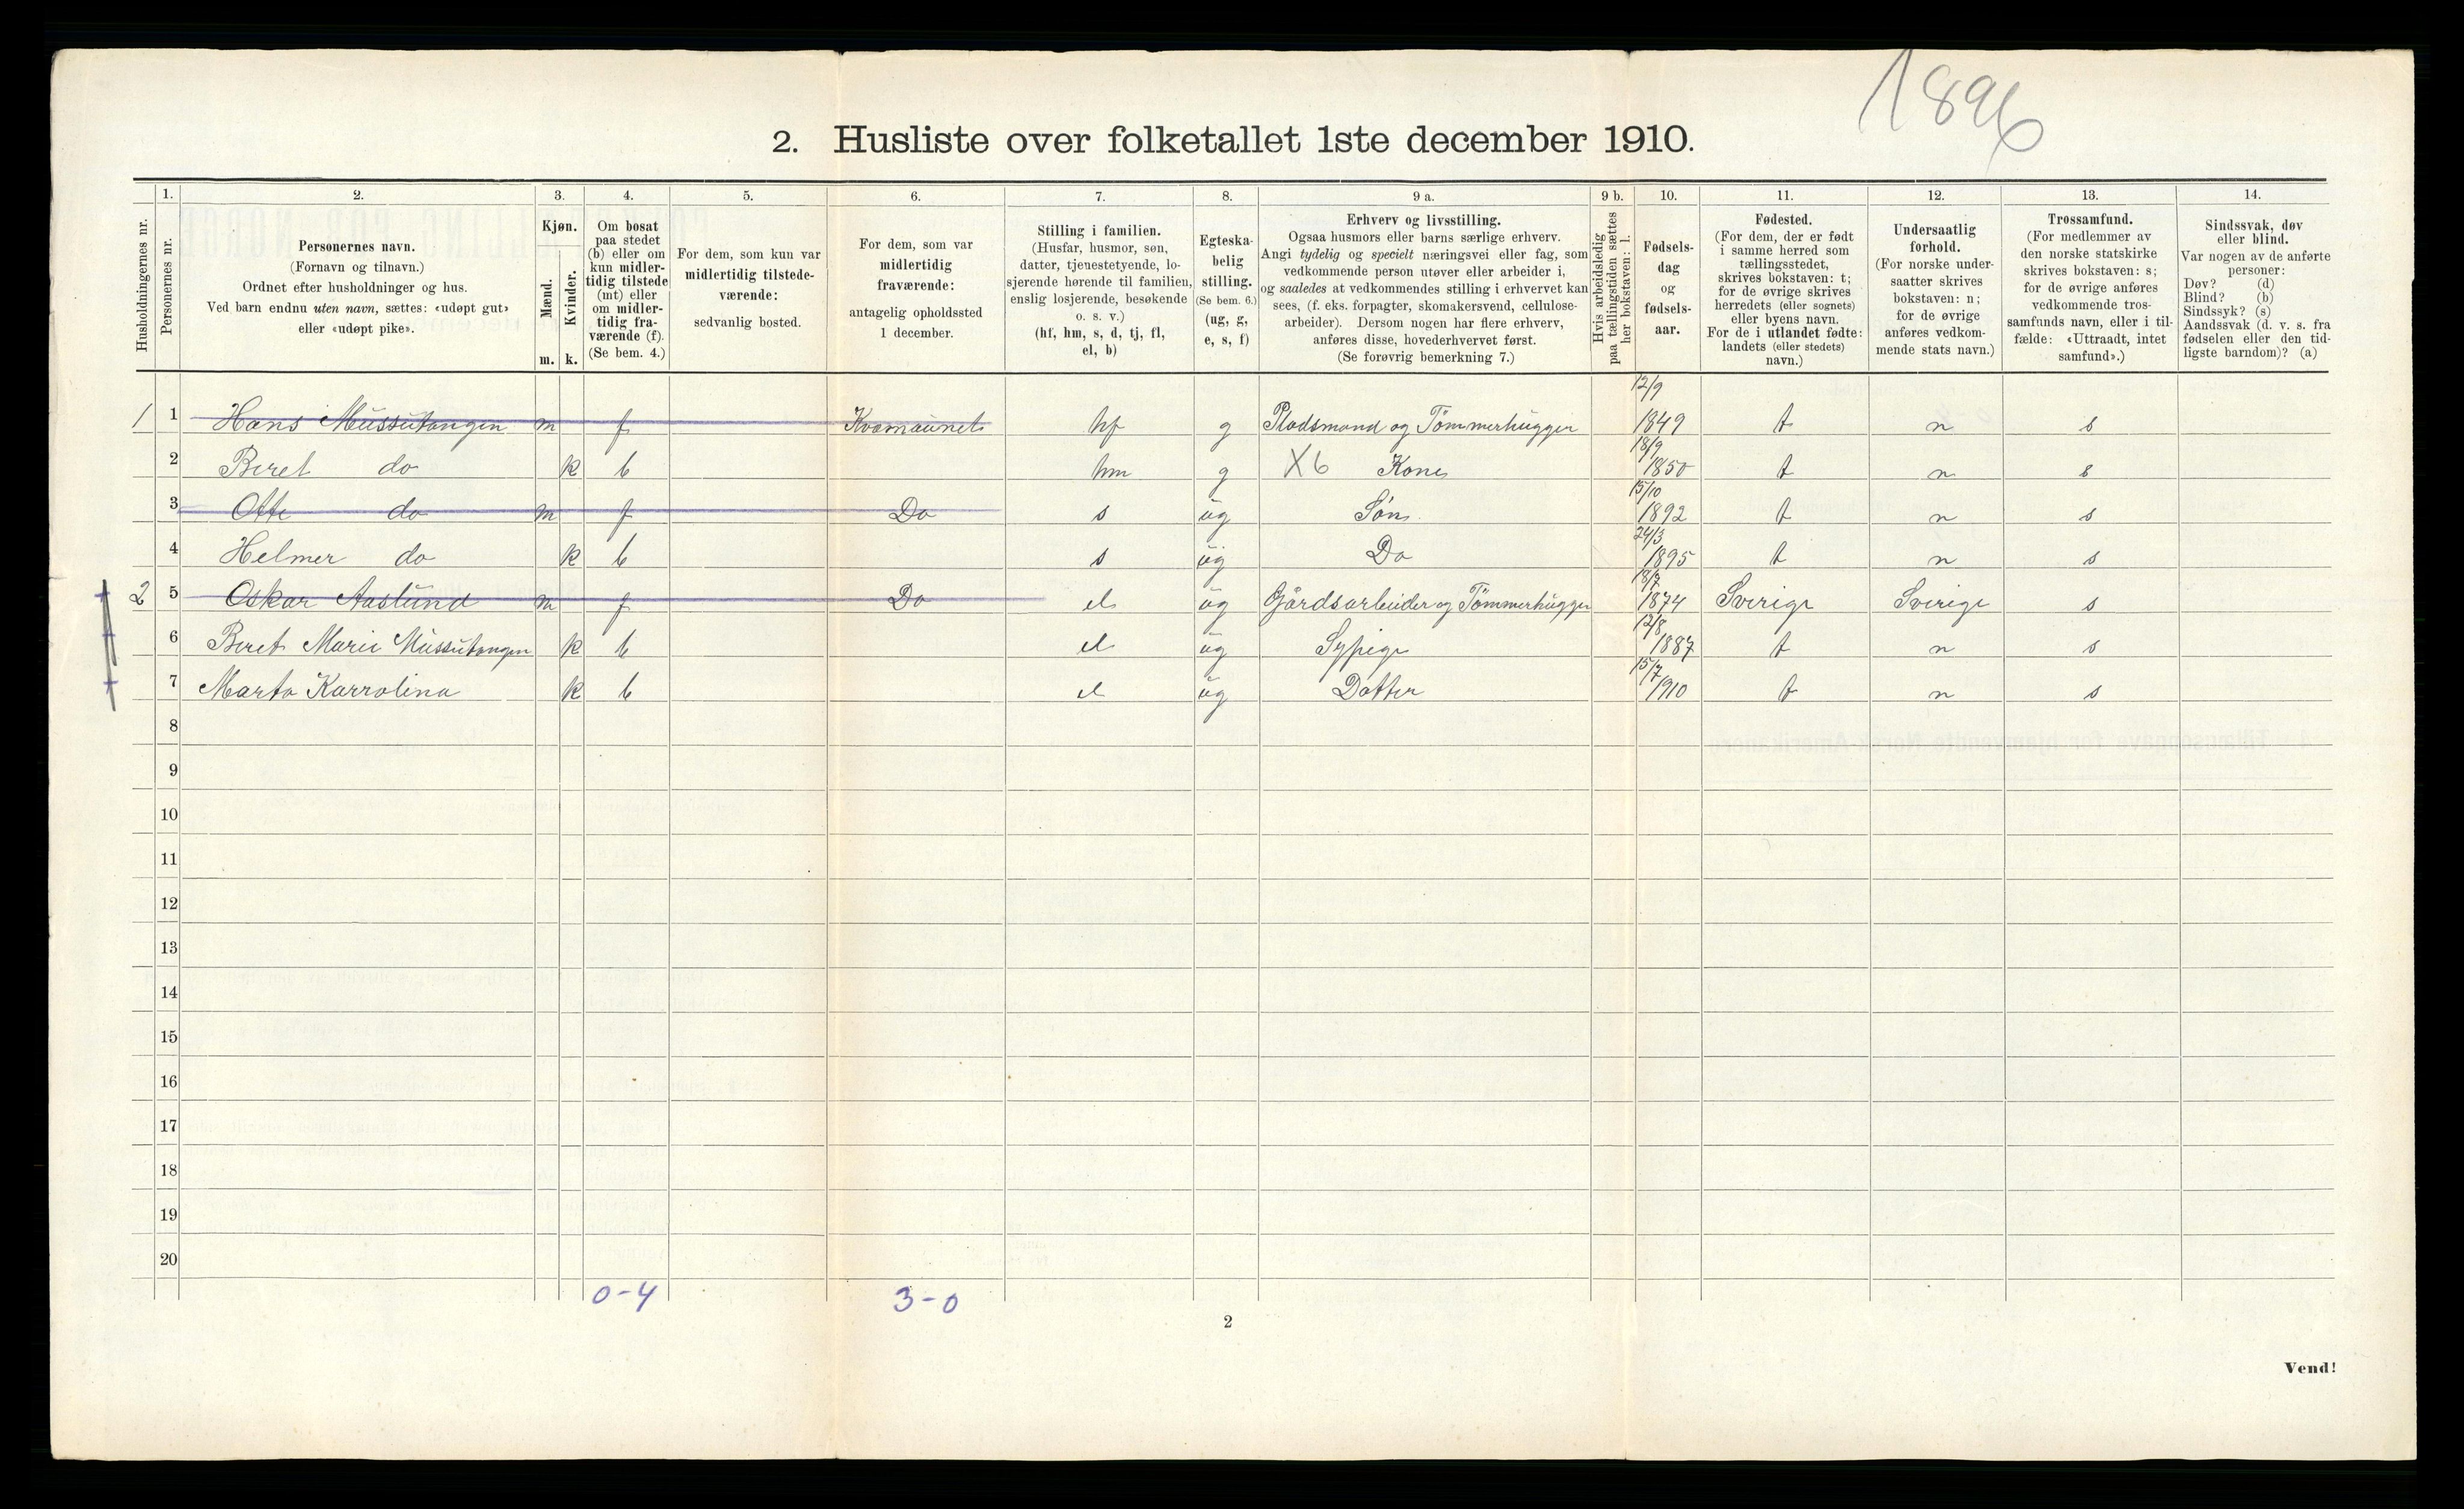 1896
2. Husliste over folketallet 1ste december 1910.
Husholdningernes nr.
1.
Personernes nr.
2.
Personernes navn.
(Fornavn og tilnavn.)
Ordnet efter husholdninger og hus.
Ved barn endnu uten navn, sættes: «udøpt gut»
eller «udøpt pike».
3.
Kjøn.
Mænd.
Kvinder.
m. k.
4.
Om bosat
paa stedet
(b) eller om
kun midler-
tidig tilstede
(mt) eller
om midler-
tidig fra-
værende (f).
(Se bem. 4.)
5.
For dem, som kun var
midlertidig tilstede-
værende:
sedvanlig bosted.
6.
For dem, som var
midlertidig
fraværende:
antagelig opholdssted
1 december.
7.
Stilling i familien.
(Husfar, husmor, søn,
datter, tjenestetyende, lo-
sjerende hørende til familien,
enslig losjerende, besøkende
o. s. v.)
(hf, hm, s, d, tj, fl,
el, b)
8.
Egteska-
belig
stilling.
(Se bem. 6.)
(ug, g,
e, s, f)
9 a.
Erhverv og livsstilling.
Ogsaa husmors eller barns særlige erhverv.
Angi tydelig og specielt næringsvei eller fag, som
vedkommende person utøver eller arbeider i,
og saaledes at vedkommendes stilling i erhvervet kan
sees, (f. eks. forpagter, skomakersvend, cellulose-
arbeider). Dersom nogen har flere erhverv,
anføres disse, hovederhvervet først.
(Se forøvrig bemerkning 7.)
9 b.
Hvis arbeidsledig
paa tællingstiden sættes
her bokstaven: l.
10.
Fødsels-
dag
og
fødsels-
aar.
11.
Fødested.
(For dem, der er født
i samme herred som
tællingsstedet,
skrives bokstaven: t;
for de øvrige skrives
herredets (eller sognets)
eller byens navn.
For de i utlandet fødte:
landets (eller stedets)
navn.)
12.
Undersaatlig
forhold.
(For norske under-
saatter skrives
bokstaven: n;
for de øvrige
anføres vedkom-
mende stats navn.)
13.
Trossamfund.
(For medlemmer av
den norske statskirke
skrives bokstaven: s;
for de øvrige anføres
vedkommende tros-
samfunds navn, eller i til-
fælde: «Uttraadt, intet
samfund».)
14.
Sindssvak, døv
eller blind.
Var nogen av de anførte
personer:
Døv? (d)
Blind? (b)
Sindssyk? (s)
Aandssvak (d. v. s. fra
fødselen eller den tid-
ligste barndom)? (a)
1 1 Hans Mussutangen m f Kvamaunet hf g Pladsmand og Tömmerhügger 12/9 1849 t n s
2 Beret do k b hm g X6 Kone 18/9 1850 t n s
3 Otte do m f Do s üg Søn 15/10 1892 t n s
4 Helmer do k b s üg Do 24/3 1895 t n s
2 5 Oskar Aaslund m f Do el üg Gårdsarbeider og Tömmerhügger 18/7 1874 Sverige Sverige s
6 Beret Marie Mussutangen k b el üg Sypige 12/8 1887 t n s
7 Marta Karrolina k b el üg Datter 15/7 1910 t n s
8
9
10
11
12
13
14
15
16
17
18
19
20
0-4 3-0
2
Vend!